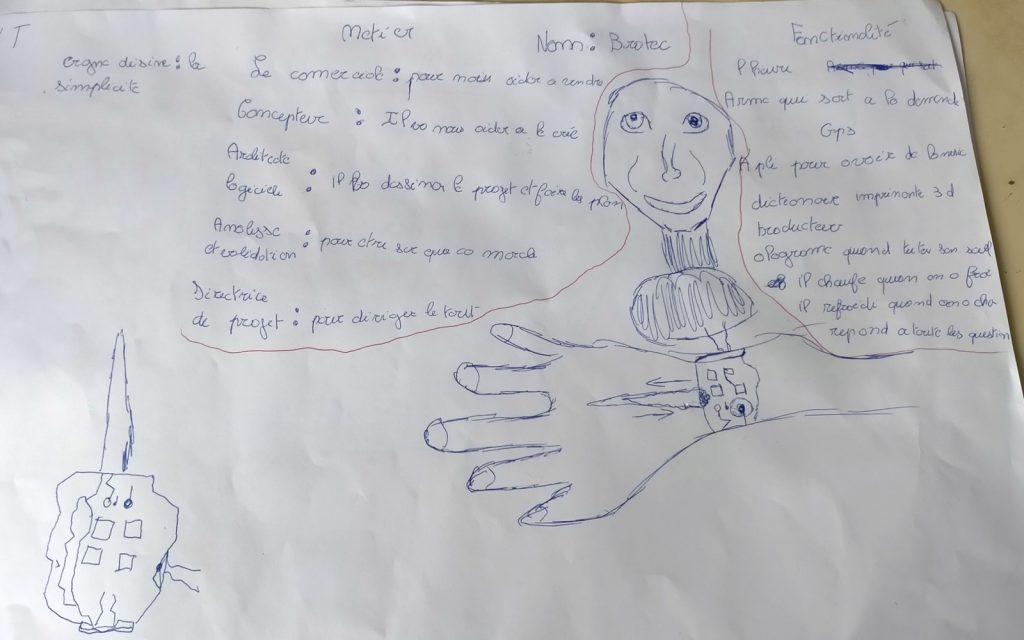 T
Metier
Nom : Brotec
Fonctionalité
orgne disine : la
simplicité
Le comerciale : pour nous aider a vendre
Concepteur : Il vo nous aider a le crié
Architecte
logiciele : il vo dessiner le projet et faire les plan
Analisse
et volidation : pour etre sur que ca marche
Directrice
de projet : pour diriger le tout
l heure
Arme qui sort a la demande
Gps
Apli pour avoir de la music
dictionaire imprimante 3 d
traducteur
ologrome quond tu tes son seul
il chaufe quan on a froi
il refroedi quond on a cho
repond a toute les question